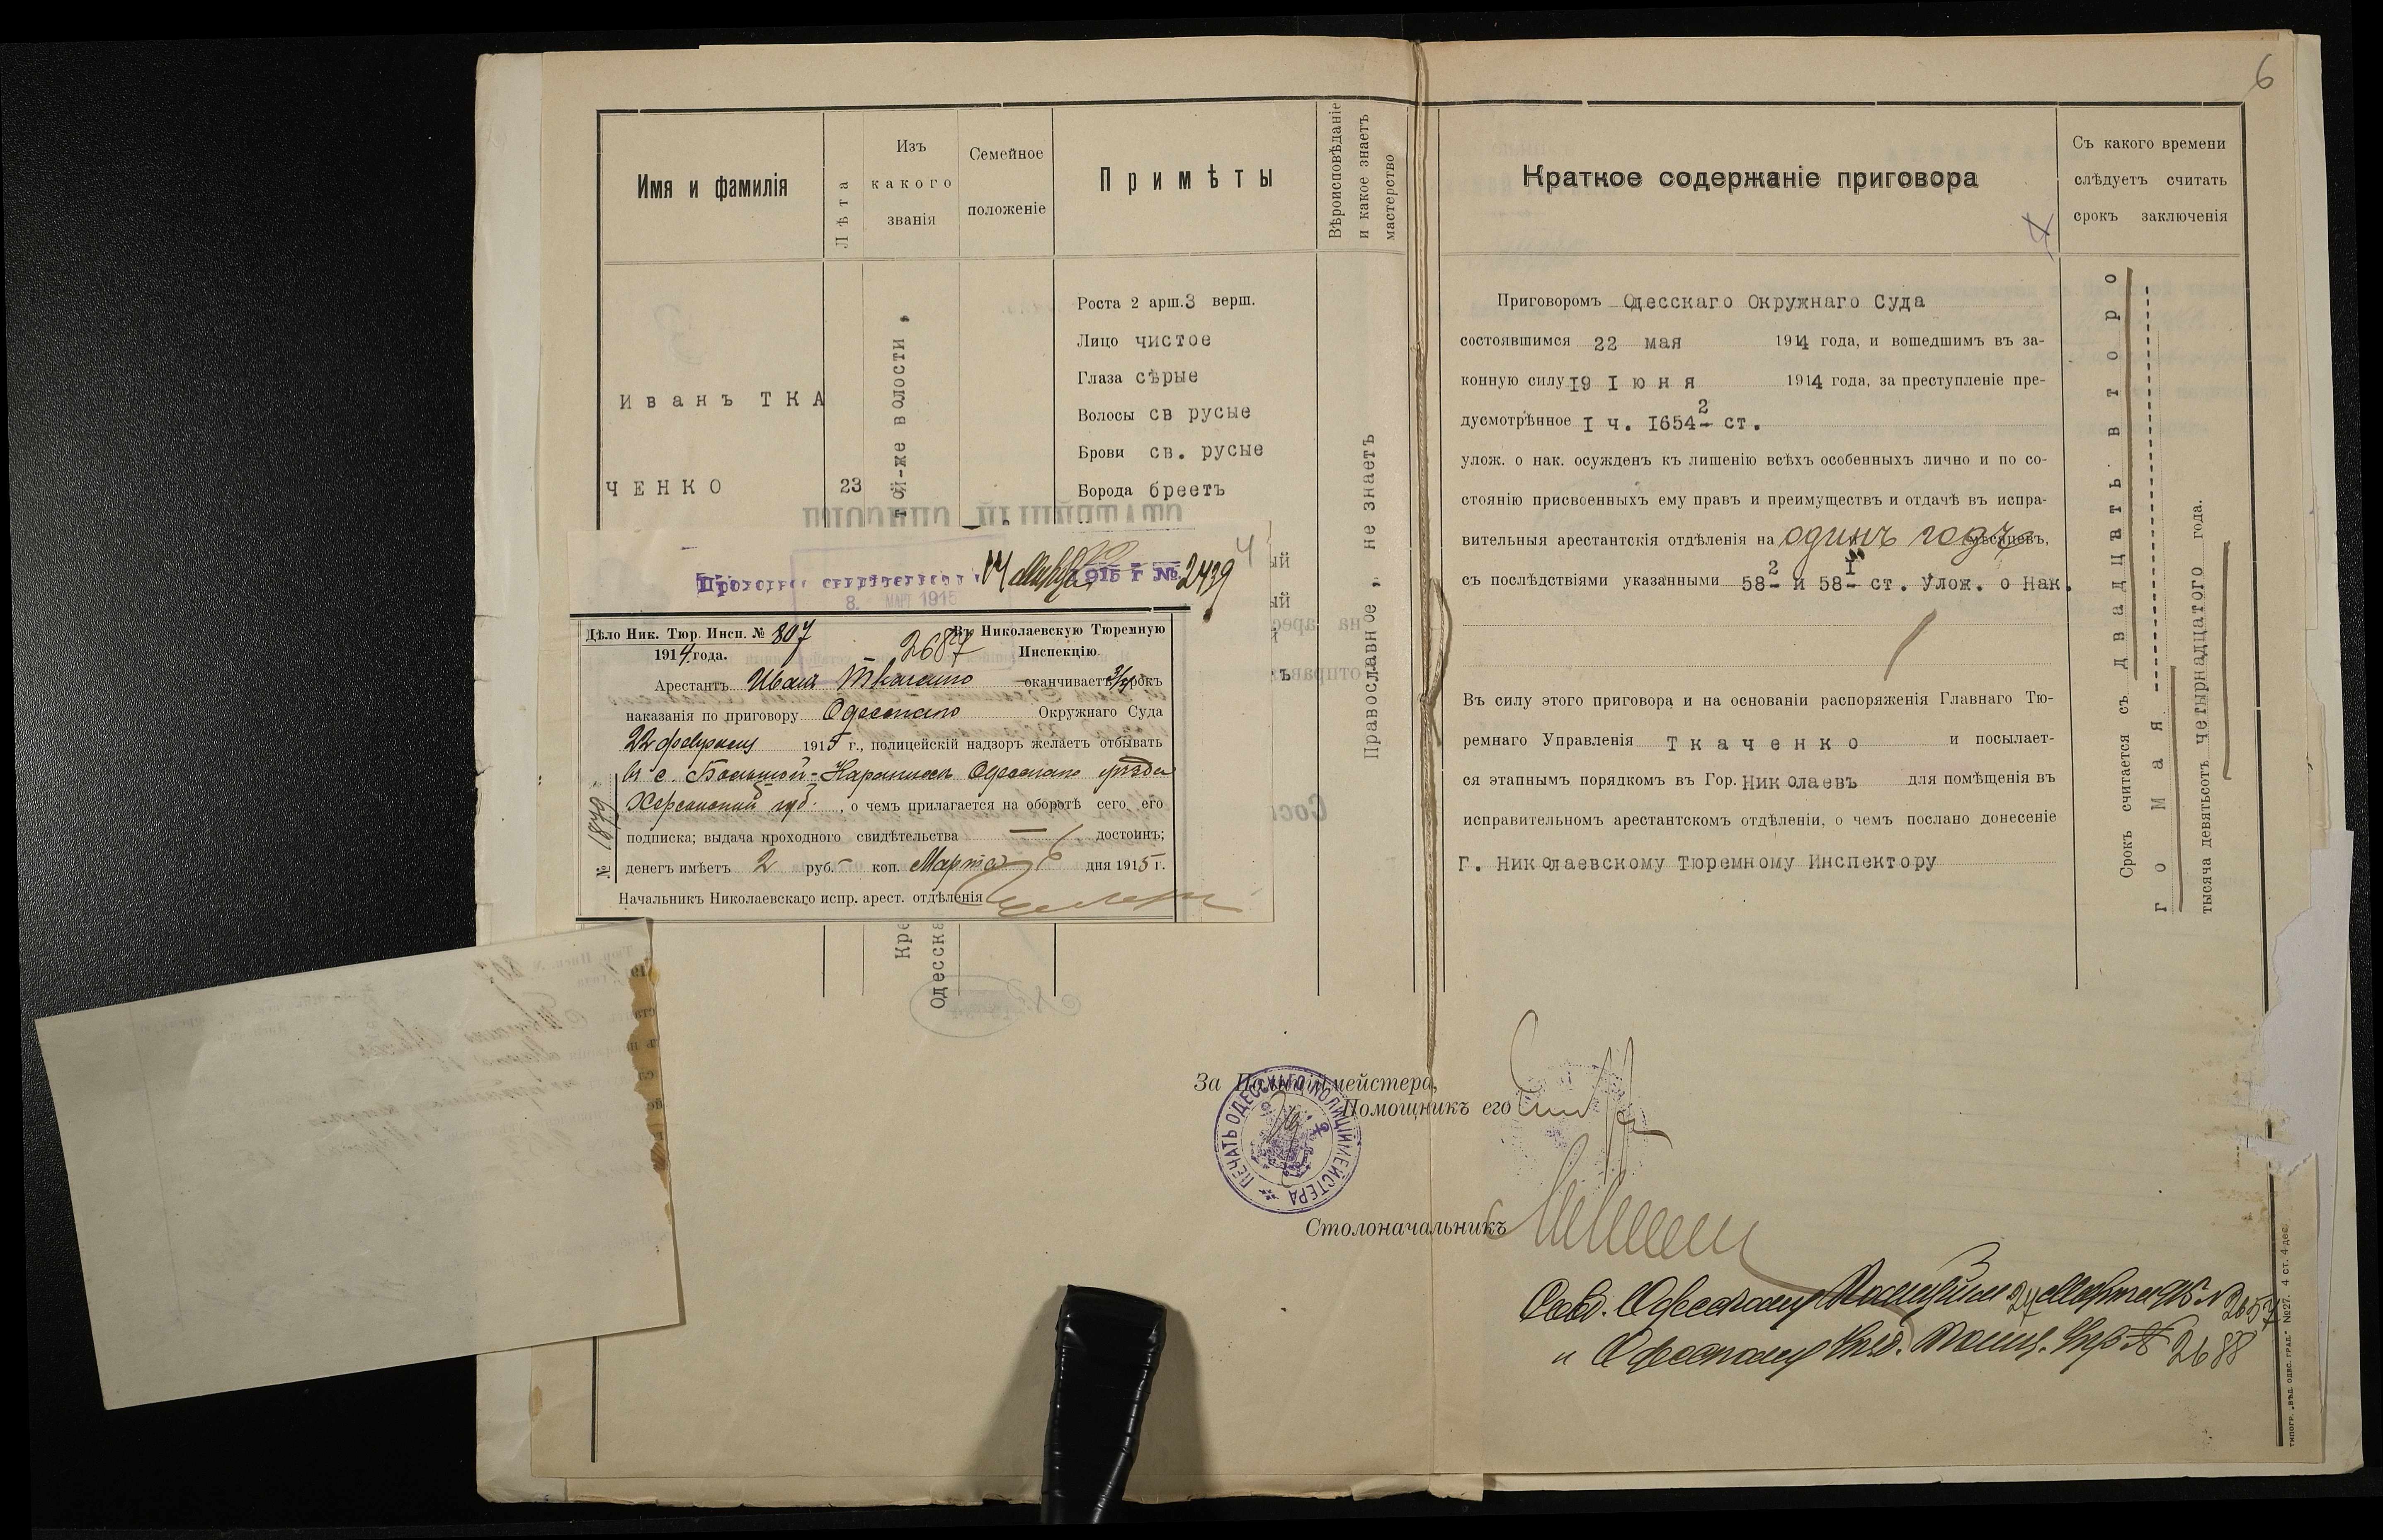 6
Имя и фамилія
Лѣта
Изъ
какого
званія
Семейное
положеніе
Примѣты
Вѣроисповѣданіе
и какое знаетъ
мастерство
Иванъ ТКА
ЧЕНКО
23
той-же волости,
Роста 2 арш. 3 верш.
Лицо чистое
Глаза сѣрые
Волосы св русые
Брови св. русые
Борода бреетъ
Православное, не знаетъ
1915 г №. 2439
4
8. МАР 1915
Дѣло Ник. Тюр. Инсп. № 807
1914 года.
2687
Въ Николаевскую Тюремную
Инспекцію.
Арестантъ Иванъ Ткаченко оканчиваетъ срокъ
наказанія по приговору Одесскаго Окружнаго Суда
22 февраля 1915 г., полицейскій надзоръ желаетъ отбывать
въ с. Одесскаго уѣзда
Херсонской губ., о чемъ прилагается на оборотѣ сего его
подписка; выдача проходного свидѣтельства — достоинъ;
денегъ имѣетъ 2 руб. — коп. Марта 6 дня 1915 г.
Начальникъ Николаевскаго испр. арест. отдѣленія
№ 1879
Кре
Одесска
Краткое содержаніе приговора
Съ какого времени
слѣдуетъ считать
срокъ заключенія
Приговоромъ Одесскаго Окружнаго Суда
состоявшимся 22 мая 1914 года, и вошедшимъ въ за-
конную силу 19 Iюня 1914 года, за преступленіе пре-
дусмотрѣнное I ч. 1654 2 ст.
улож. о нак. осужденъ къ лишенію всѣхъ особенныхъ лично и по со-
стоянію присвоенныхъ ему правъ и преимуществъ и отдачѣ въ испра-
вительныя арестантскія отдѣленія на одинъ годъ месяцевъ,
съ послѣдствіями указанными 58 2 и 58 I ст. Улож. о Нак.
Въ силу этого приговора и на основаніи распоряженія Главнаго Тю-
ремнаго Управленія Ткаченко и посылает-
ся этапнымъ порядкомъ въ Гор. Николаевъ для помѣщенія въ
исправительномъ арестантскомъ отдѣленіи, о чемъ послано донесеніе
Г. Николаевскому Тюремному Инспектору
Срокъ считается съ двадцать второ
го Мая
тысяча девятьсотъ четырнадцатого года.
За Полиціймейстера,
Помощникъ его
ПЕЧАТЬ ОДЕССКАГО ПОЛИЦІЙМЕЙСТЕРА
Столоначальникъ
Одесскому 27 Марта 915 № 2657
и Одесскому № 2688
типогр. „вѣд. одесс. град.“ №27. 4 ст. 4 дес.